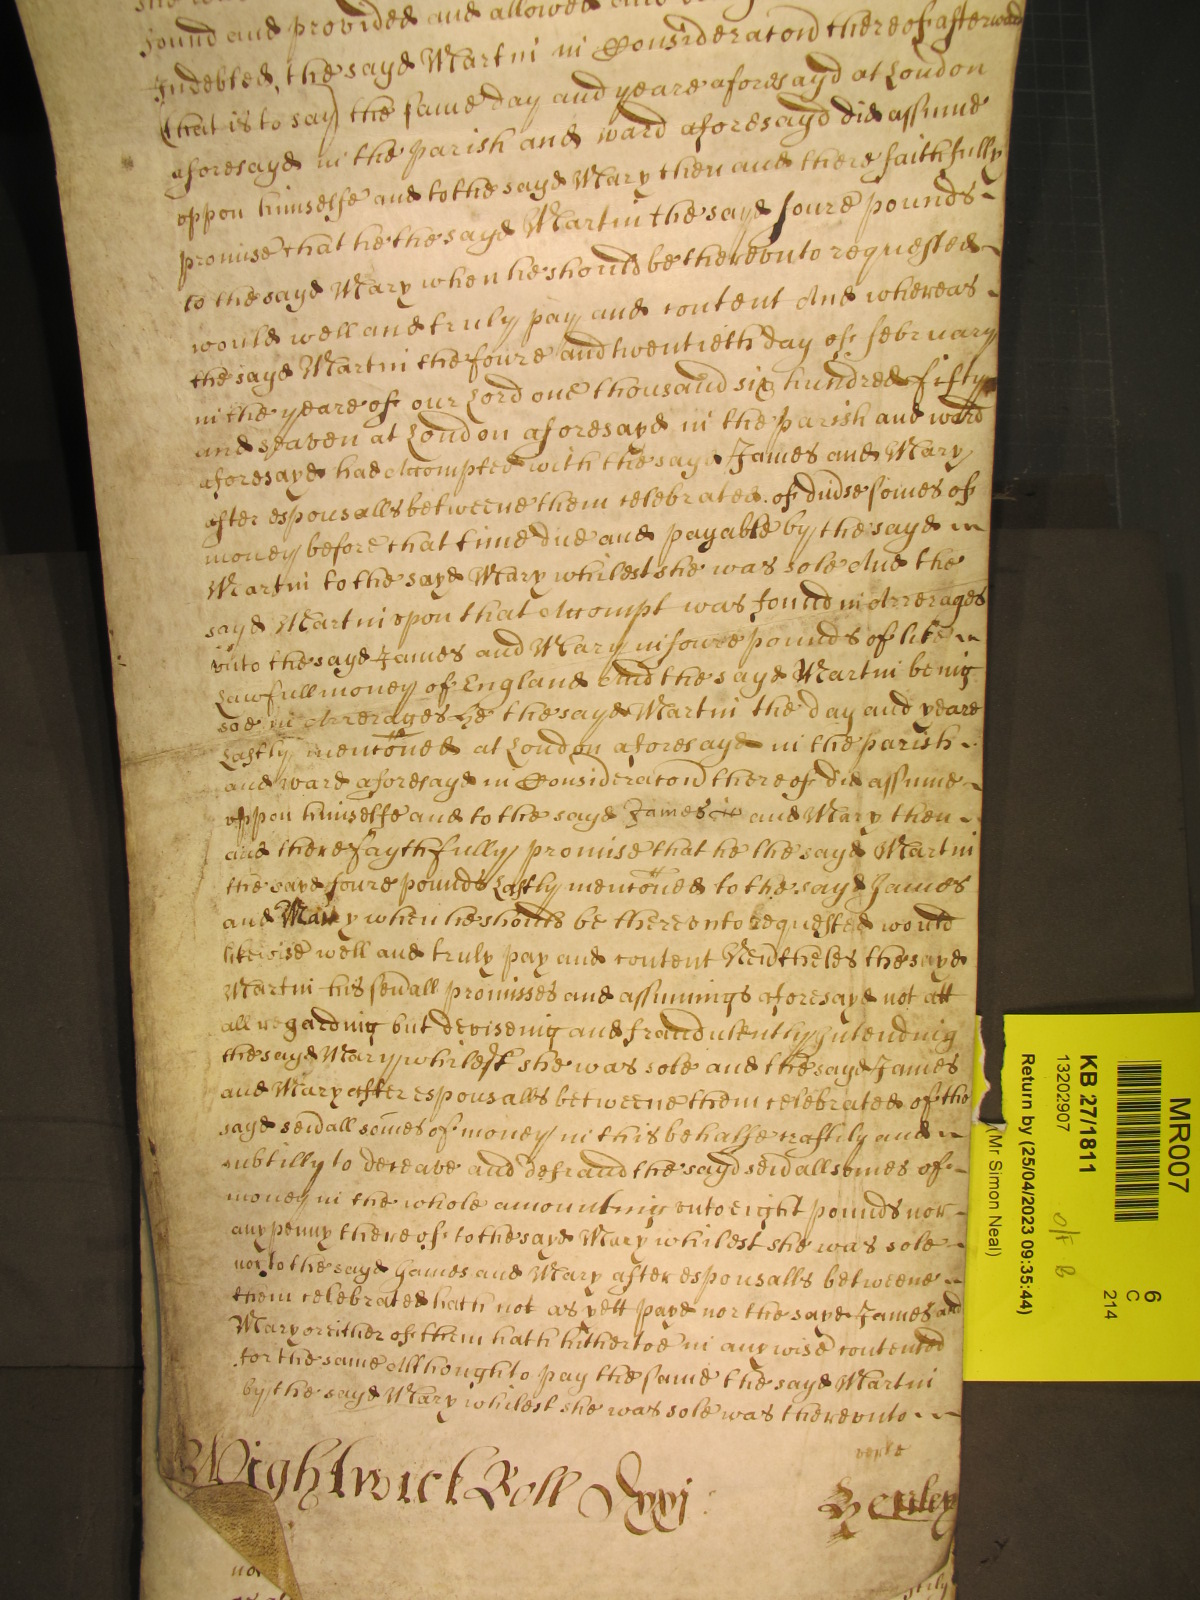 found and provided and allowed and
Indebted, the sayd Martin in Consideracon thereof afterward
(that is to say) the same day and yeare aforesayd at London
aforesayd in the parish and ward aforesayd did assume
vppon himselfe and to the sayd Mary then and there faithfully
promise that he the sayd Martin the sayd foure pounds
to the sayd Mary when he should be therevnto requested
would well and truly pay and content And whereas
the sayd Martin the foure and twentieth day of february
in the yeare of our Lord one thousand six hundred fifty
and seaven at London aforesayd in the parish and ward
aforesayd had Accompted with the sayd James and Mary
after espousalls betweene them celebrated of divse somes of
money before that time due and payable by the sayd
Martin to the sayd Mary whilest she was sole And the
sayd Martin vpon that Accompt was found in Arrerages
vnto the sayd James and Mary in foure pounds of like
Lawfull money of England And the sayd Martin being
soe in Arrerages he the sayd Martin the day and yeare
Lastly menconed at London aforesayd in the parish
and ward aforesayd in Consideracon thereof did assume
vppon himselfe and to the sayd James and Mary then
and there faythfully promise that he the sayd Martin
the sayd foure pounds Lastly menconed to the sayd James
and Mary when he should be therevnto requested would
likewise well and truly pay and content Nevtheles the sayd
Martin his sevall promisses and assumings aforesayd not att
all regarding but devising and fraudulently Intending
the sayd Mary whilest she was sole and the sayd James
and Mary after espousalls betweene them celebrated of the
sayd sevall somes of money in this behalfe craftily and
subtilly to deceave and defraud the sayd sevall somes of
money in the whole amounting vnto eight pounds nor
any penny thereof to the sayd Mary whilest she was sole
nor to the sayd James and Mary after espousalls betweene
them celebrated hath not as yett payd nor the sayd James and
Mary or either of them hath hithertoe in any wise contented
for the same Although to pay the same the sayd Martin
by the sayd Mary whilest she was sole was therevnto
Wightwick Roll
Henley
MR007
6
C
214
KB 27/1811
13202907
Return by (25/04/2023 09:35:44)
(Mr Simon Neal)